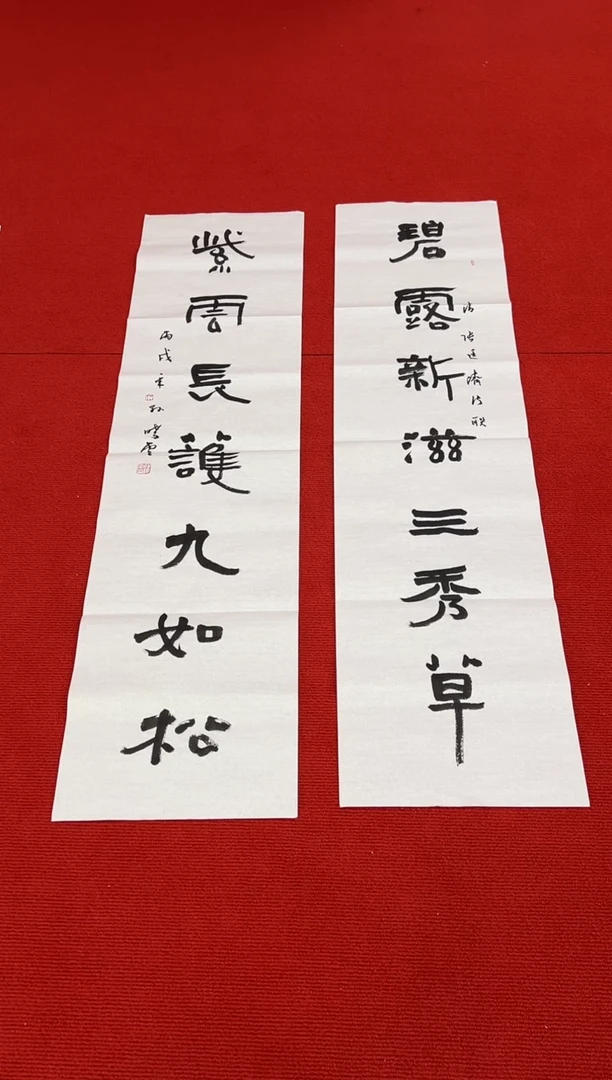 碧露新滋三秀草
張廷濟
紫雲長護九如松
丙戌
孫曉雲